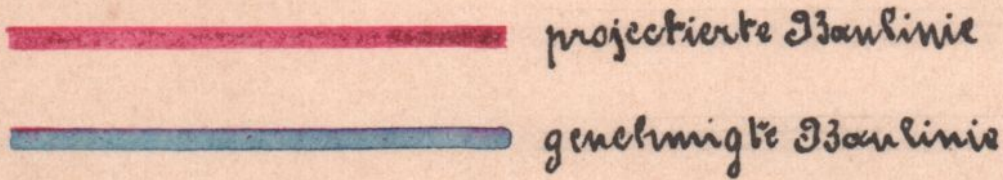 projectierte Baulinie
genehmigte Baulinie